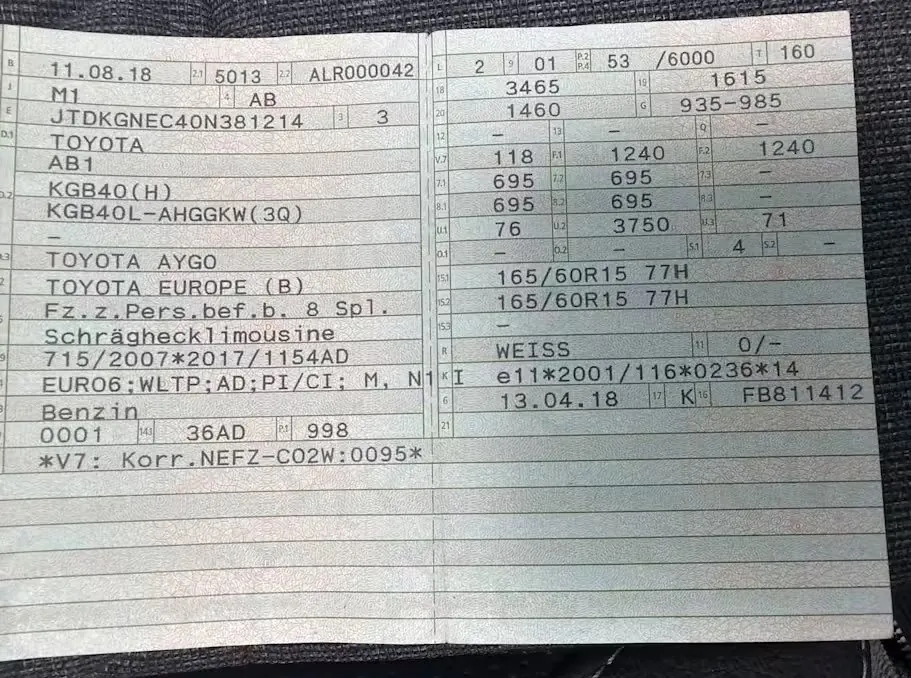 B 11.08.18 2.1 5013 2.2 ALR000042
J M1 4 AB
E JTDKGNEC40N381214 3 3
D.1 TOYOTA
AB1
D.2 KGB40(H)
KGB40L-AHGGKW(3Q)
–
D.3 TOYOTA AYGO
2 TOYOTA EUROPE (B)
5 Fz.z.Pers.bef.b. 8 Spl.
Schräghecklimousine
V.9 715/2007*2017/1154AD
14 EURO6;WLTP;AD;PI/CI; M, N1 I
P.3 Benzin
0001 14.1 36AD P.1 998
*V7: Korr.NEFZ-CO2W:0095*
L 2 9 01 P.2 P.4 53 /6000 T 160
18 3465 19 1615
20 1460 G 935-985
12 – 13 – Q –
V.7 118 F.1 1240 F.2 1240
7.1 695 7.2 695 7.3 –
8.1 695 8.2 695 8.3 –
U.1 76 U.2 3750 U.3 71
O.1 – O.2 – S.1 4 S.2 –
15.1 165/60R15 77H
15.2 165/60R15 77H
15.3 –
R WEISS 11 0/–
K e11*2001/116*0236*14
6 13.04.18 17 K 16 FB811412
21